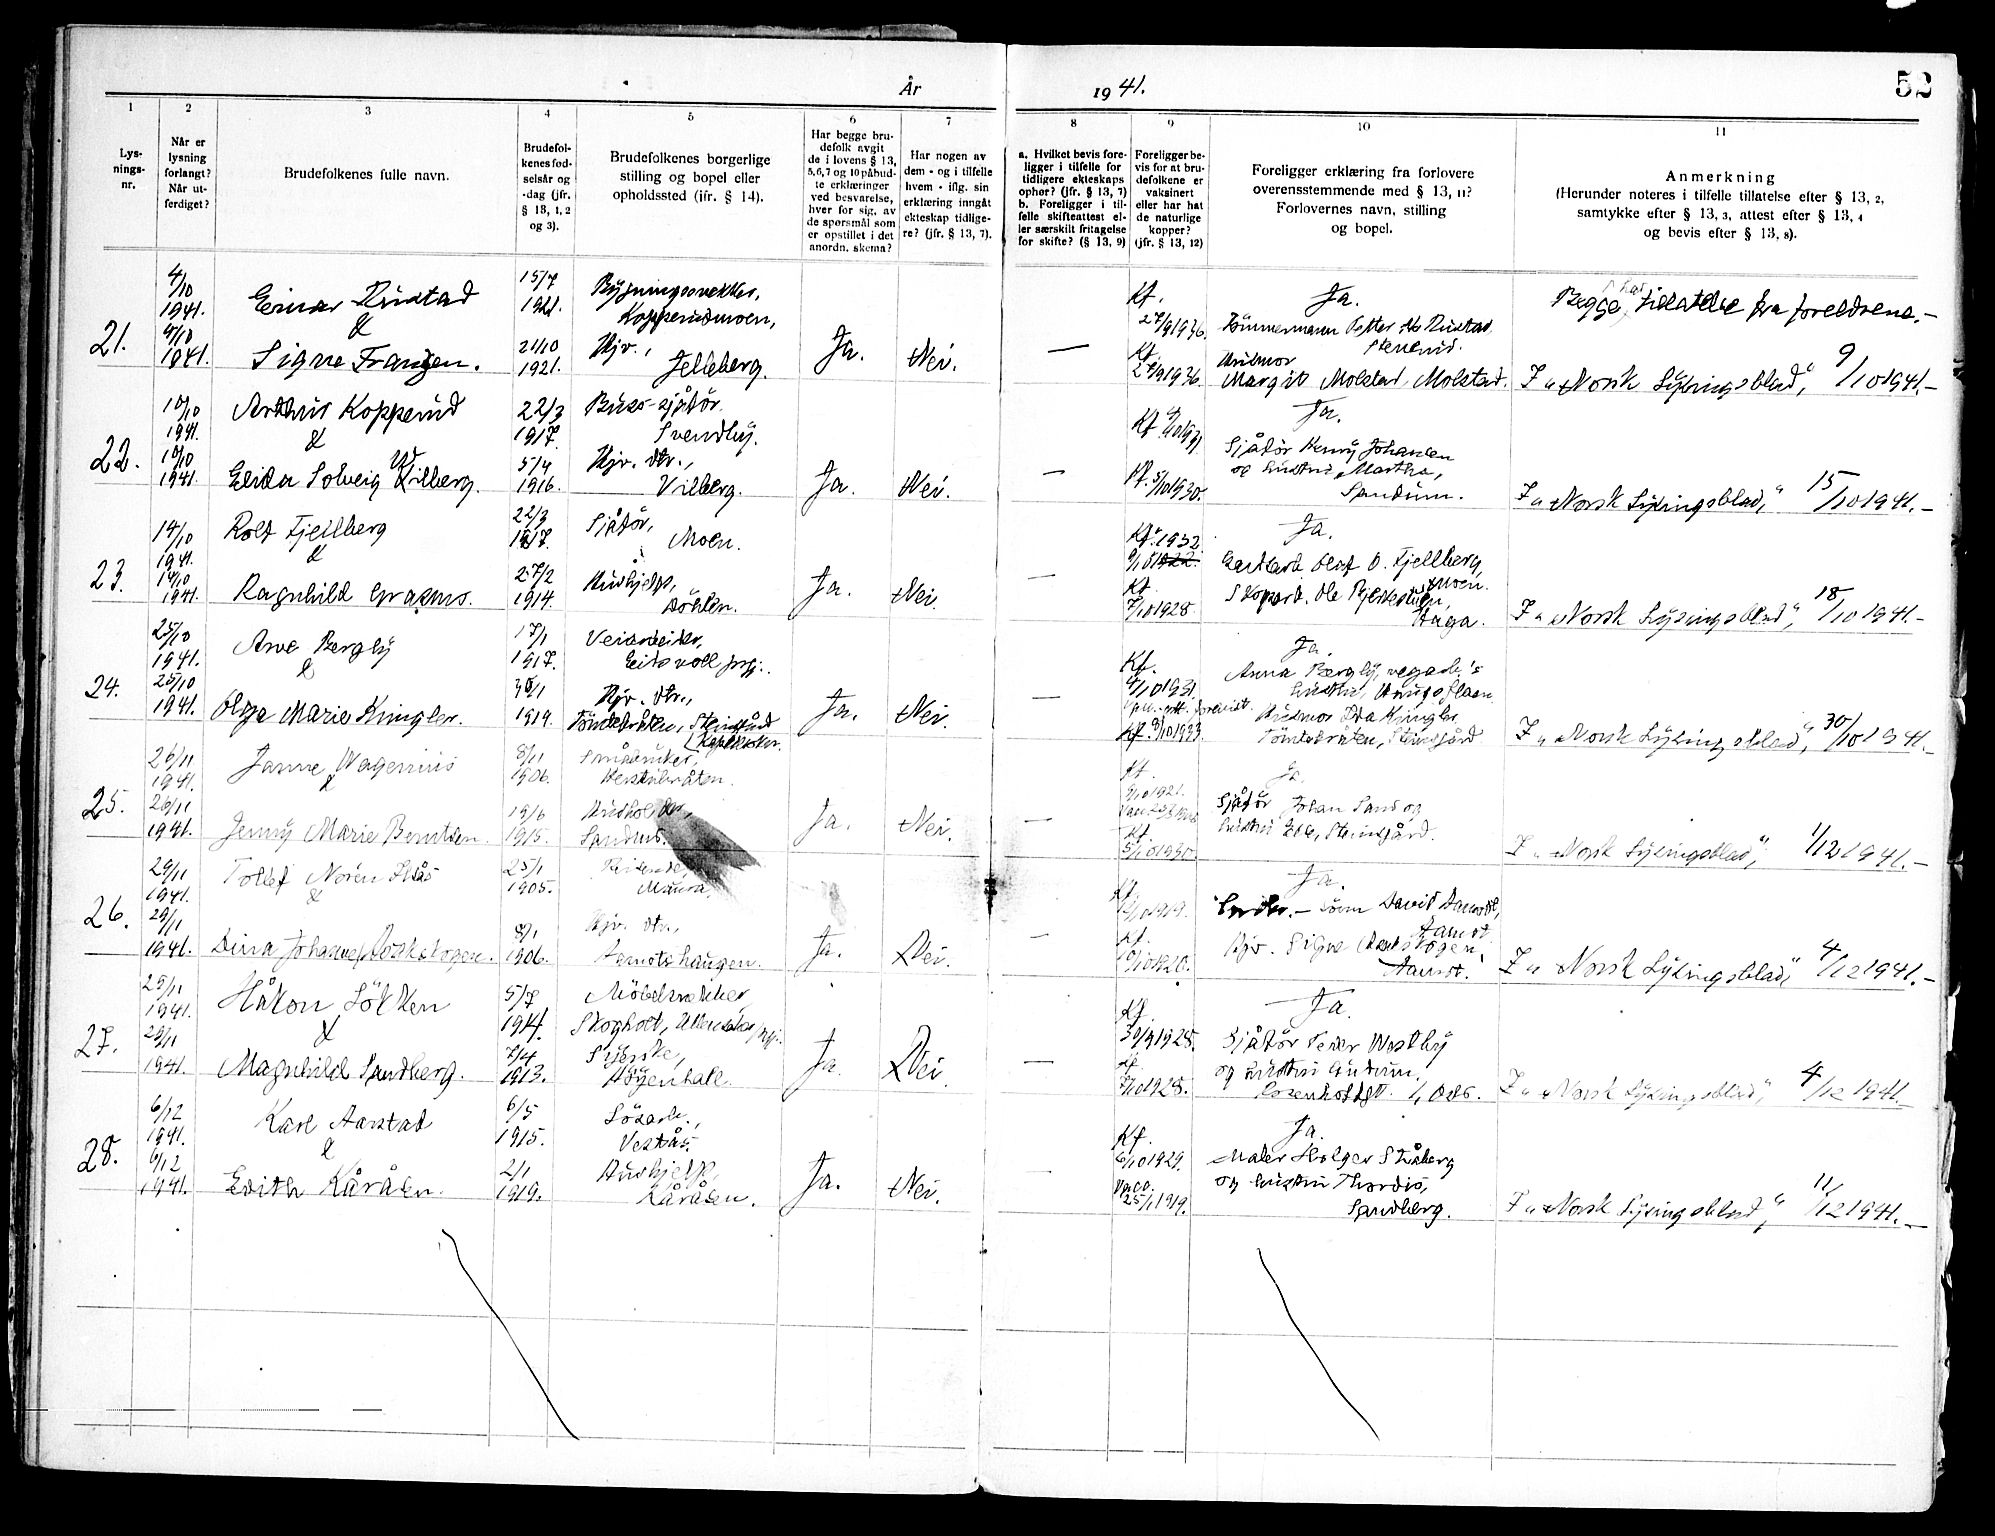 År
1941.
52
1
2
3
4
5
6
7
8
9
10
11
Lys-
nings-
nr.
Når er
lysning
forlangt?
Når ut-
ferdiget?
Brudefolkenes fulle navn.
Brudefol-
kenes fød-
selsår og
-dag (jfr.
§ 13, 1, 2
og 3).
Brudefolkenes borgerlige
stilling og bopel eller
opholdssted (jfr. § 14).
Har begge bru-
defolk avgit
de i lovens § 13,
5,6,7 og 10 påbud-
te erklæringer
ved besvarelse,
hver for sig, av
de spørsmål som
er opstillet i det
anordn. skema?
Har nogen av
dem - og i tilfelle
hvem - iflg. sin
erklæring inngåt
ekteskap tidlige-
re? (jfr. § 13, 7).
a. Hvilket bevis fore-
ligger i tilfelle for
tidligere ekteskaps
ophør? (jfr. § 13, 7)
b. Foreligger i til-
felle skifteattest el-
ler særskilt fritagelse
for skifte? (§ 13, 9)
Foreligger be-
vis for at bru-
defolkene er
vaksinert
eller har hat
de naturlige
kopper?
(jfr. § 13, 12)
Foreligger erklæring fra forlovere
overensstemmende med § 13, 11?
Forlovernes navn, stilling
og bopel.
Anmerkning
(Herunder noteres i tilfelle tillatelse efter § 13, 2,
samtykke efter § 13, 3, attest efter § 13, 4
og bevis efter § 13, 8).
21.
4/10
1941.
4/10
1941.
Einar Rustad
&
Signe Franzen.
15/7
1921.
21/10
1921.
Bygningssnekker,
Kopperudmoen,
Hjv.,
Jelleberg.
Ja.
Nei.
—
Kf.
27/9 1936.
Kf.
27/9 1936.
Ja.
Tömmermann Petter M. Rustad
Stenerud.
Husmor
Margit Molstad, Molstad.
Begge har tillatelse fra foreldrene.-
I "Norsk Lysingsblad," 9/10 1941.-
22.
10/10
1941.
10/10
1941.
Arthur Kopperud
&
Elida Solveig Vilberg.
22/3
1917.
5/4
1916.
Buss-sjåför.
Svendby.
Hjv. dtr.,
Vilberg.
Ja.
Nei.
—
Kf. 4/10 1931
Kf. 5/10 1930.
Ja.
Sjåför Henry Johansen
og hustru Martha,
Sandum.
I "Norsk Lysingsblad," 15/10 1941.-
23.
14/10
1941.
14/10
1941.
Rolf Fjellberg
&
Ragnhild Grasmo.
22/3
1917.
27/2
1914.
Sjåför,
Moen.
Hushjelp,
Döhlen.
Ja.
Nei.
—
Kf. 1932
Kf.
7/10 1928.
Ja.
Gardarb. Olaf O. Fjellberg,
Moen.
Haga.
I "Norsk Lysingsblad", 18/10 1941.-
24.
25/10
1941.
25/10
1941.
Arve Bergly
&
Olga Marie Kingler.
17/1
1917.
1919.
Veiarbeider,
Eidsvoll prgj.
Hjv. dtr.,
Tömtebråten, Steinsgård
Ja.
Nei.
—
Kf.
4/10 1931
Kf. 8/10 1933
Ja.
Anna Bergly, vegarb.'s
hustru,
Husmor Ida Kingler
Tömtebråten, Steinsgård
I "Norsk Lysingsblad", 30/10 1941.-
25.
26/11
1941.
26/11
1941.
Janne Wagenius
&
Jenny Marie Berntsen.
8/11
1906.
19/6
1915.
Småbruker,
Sandnes.
Ja.
Nei.
—
Kf.
5/10 1921.
Kf.
5/10 1930.
Ja.
Sjåför Johan Sand og
hustru Ella, Steinsgård.
I "Norsk Lysingsblad", 1/12 1941.-
26.
29/11
1941.
29/11
1941.
Tollef Norén Slås
&
Dina Johanne Rokkskogen.
25/1
1905.
8/1
1906.
Maura,
Hjv. dtr.,
Aamotshaugen.
Ja.
Nei.
—
Kf.
Kf.
10/10 1920.
Ja.
David Aamodt,
Aamot
Hjv. Signe
Aamot.
I "Norsk Lysingsblad" 4/12 1941.-
27.
25/11
1941.
25/11
1941.
Håkon Lökken
&
Magnhild Sandberg.
5/7
1914.
7/4
1913.
Möbelsnekker,
Skogholt, Ullensaker prgj.
Syerske,
Höyenhall.
Ja.
Nei.
—
Kf.
30/9 1928.
Kf.
7/10 1928.
Ja.
Sjåför Peder Westby
og hustru Gudrun,
I "Norsk Lysingsblad", 4/12 1941.
28.
6/12
1941.
6/12
1941.
Karl Aarstad
&
Edith Kåråsen.
6/5
1915.
2/1
1919.
Lösarb.,
Vestås.
Hushjelp,
Kåråsen.
Ja.
Nei.
—
Kf.
6/10 1929.
Vacc.
25/1 1919.
Ja.
Maler Holger Stråberg
og hustru Thordis,
Sandberg.
I "Norsk Lysingsblad", 11/12 1941.-